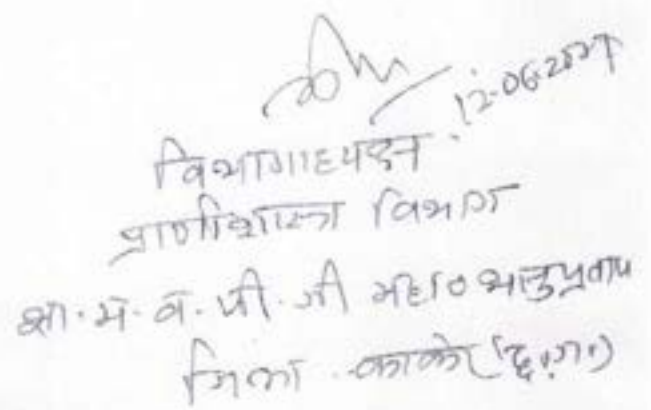 12-06-2021
विभागाध्यक्ष
प्राणीशास्त्र विभाग
शा. म. व. पी. जी महा० भानुप्रताप
जिला कांकेर (छ.ग.)